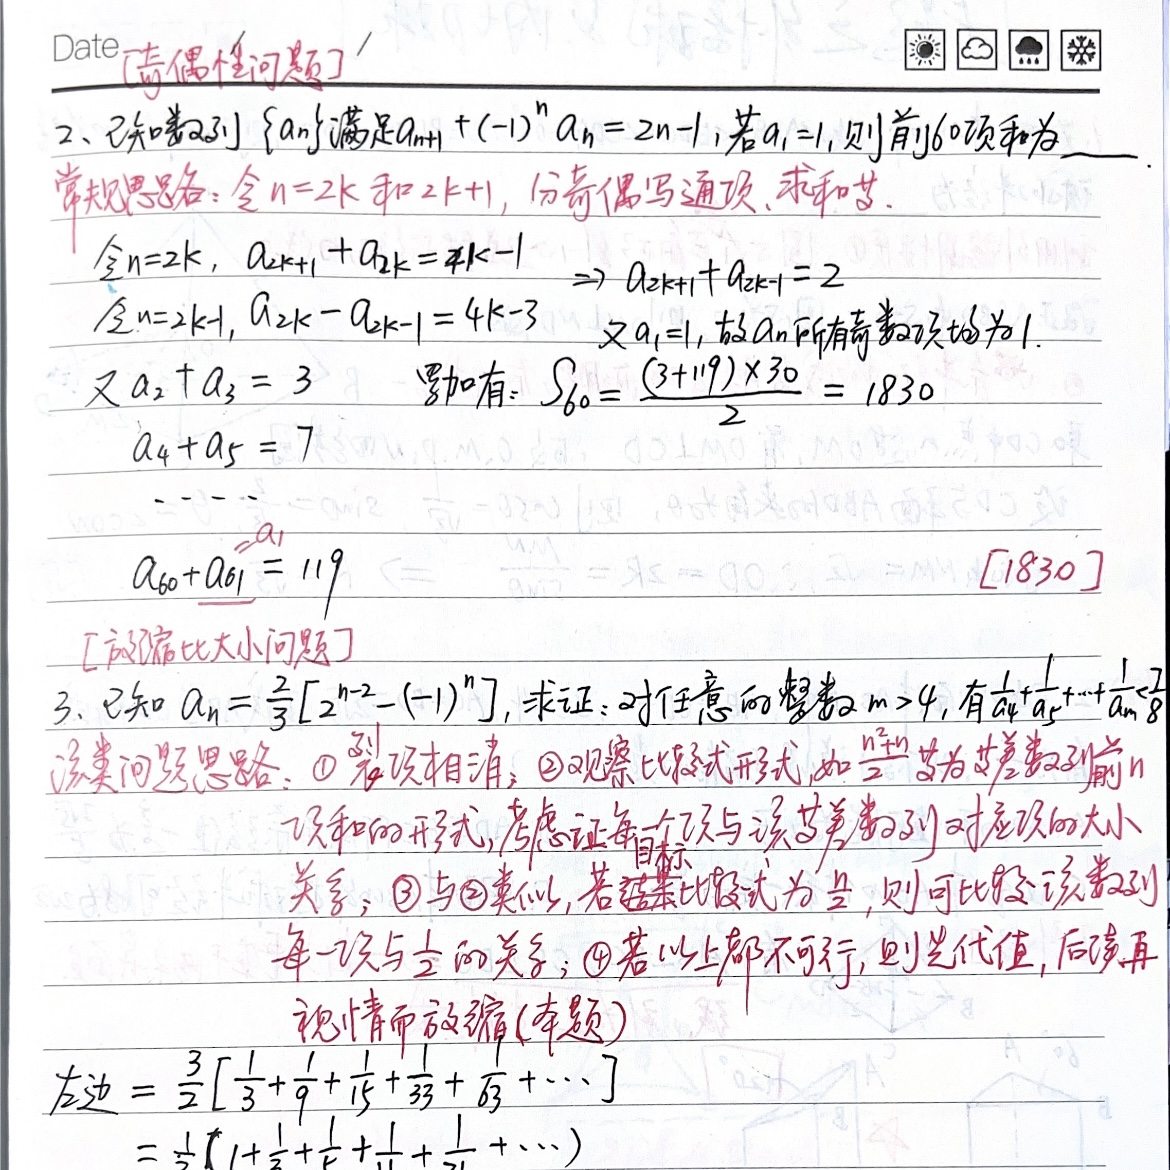 Date
[奇偶性问题]
2、已知数列{an}满足an+1+(-1)^n an=2n-1,若a1=1,则前60项和为____.
常规思路:令n=2k和2k+1,份奇偶写通项、求和等.
令n=2k, a2k+1+a2k=4k-1
⇒ a2k+1+a2k-1=2
令n=2k-1, a2k-a2k-1=4k-3
又a1=1,故an所有奇数项均为1.
又a2+a3=3 累加有:S60=(3+119)×30/2=1830
a4+a5=7
......
=a1
a60+a61=119 [1830]
[放缩比大小问题]
3、已知an=2/3[2^(n-2)-(-1)^n],求证:对任意的整数m>4,有1/a4+1/a5+…+1/am<7/8
该类问题思路:①裂项相消;②观察比较式形式,如(n²+n)/2等为等差数列前n
项和的形式,考虑证每一个项与该等差数列对应项的大小
关系;③与②类似,若目标比较式为n/2,则可比较该数列
每一项与1/2的关系;④若以上都不可行,则先代值,后续再
视情而放缩(本题)
左边=3/2[1/3+1/9+1/15+1/33+1/63+…]
=1/2(1+1/3+1/5+1/11+1/21+…)